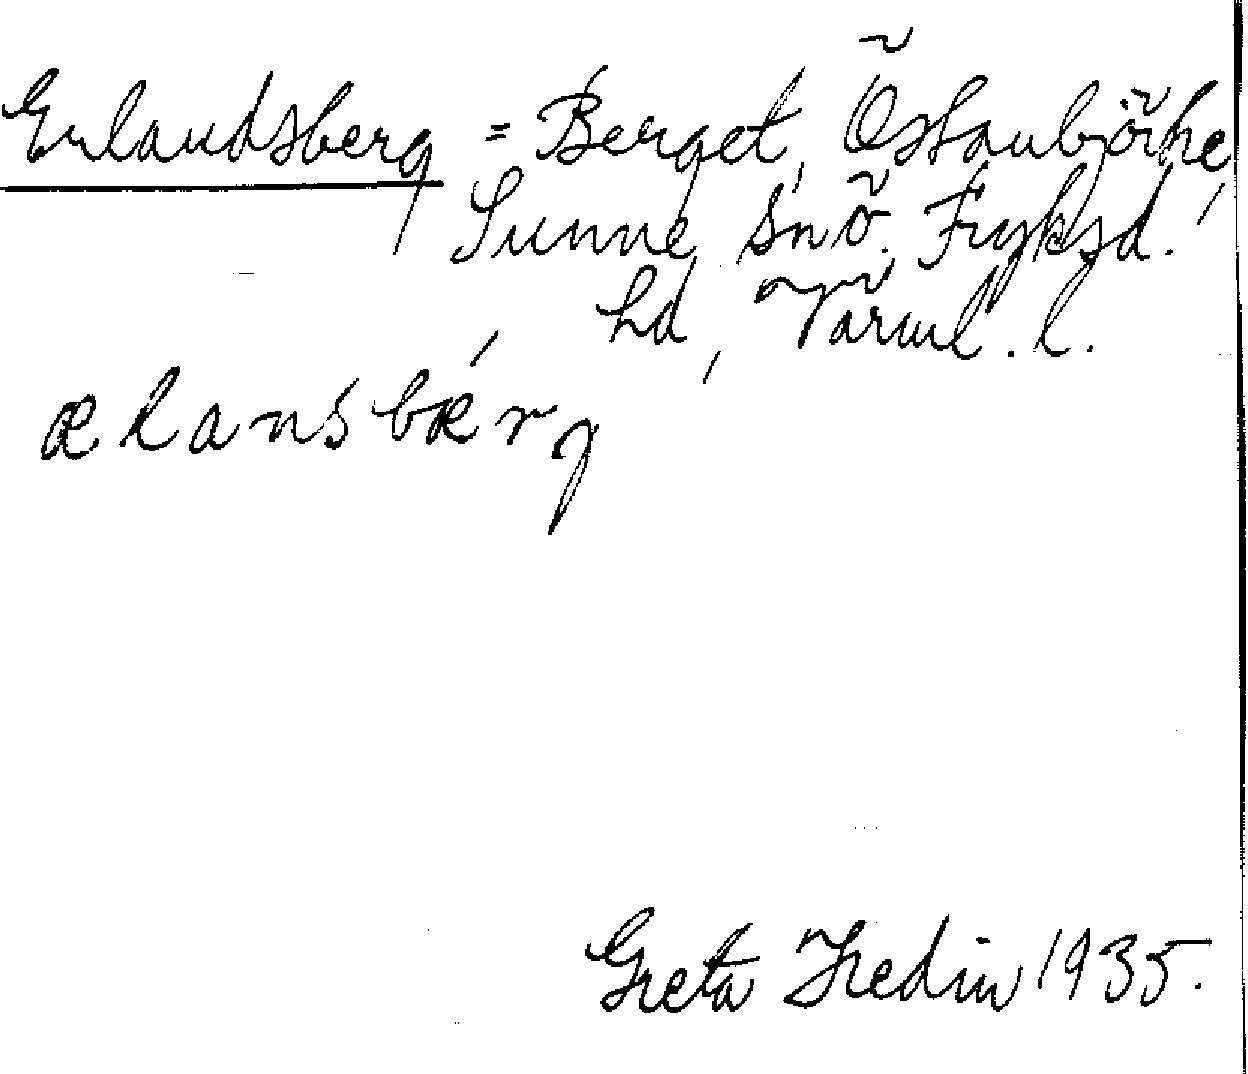 Erlandsberg = Berget, Östanbjörke,
Sunne, Snö. Fryksd.
hd, Värml. l.
ælansbær̀g
Greta Hedin 1935.